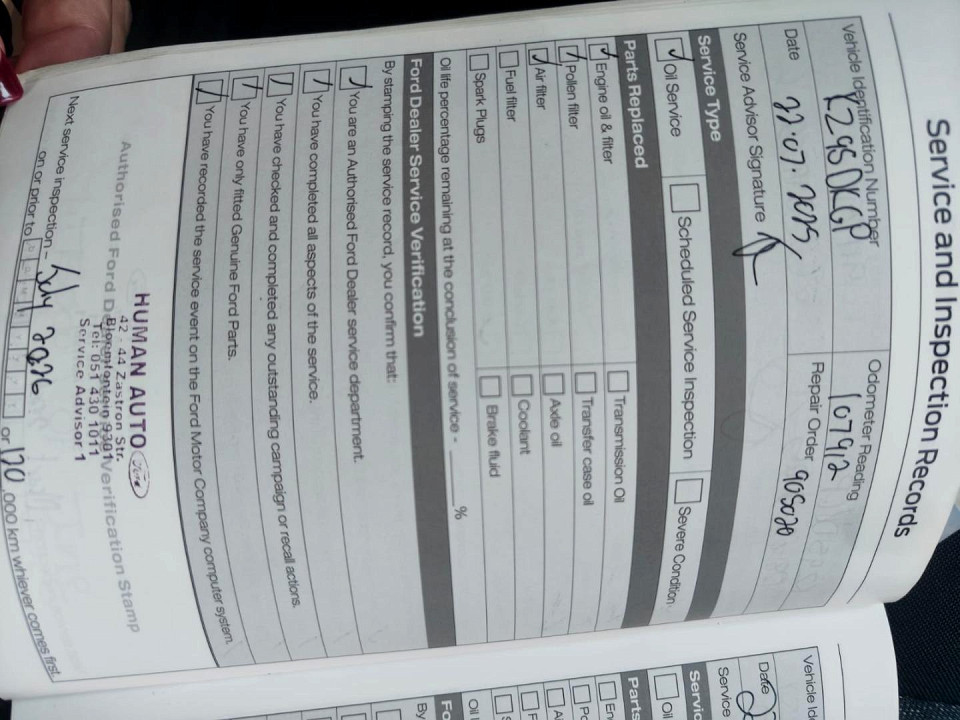 Service and Inspection Records
Vehicle Identification Number
K295DKGP
Odometer Reading
107912
Date 22.07.2025
Repair Order 905020
Service Advisor Signature
Service Type
Oil Service
Scheduled Service Inspection
Severe Condition
Parts Replaced
Engine oil & filter
Transmission Oil
Pollen filter
Transfer case oil
Air filter
Axle oil
Fuel filter
Coolant
Spark Plugs
Brake fluid
Oil life percentage remaining at the conclusion of service - ____ %
Ford Dealer Service Verification
By stamping the service record, you confirm that:
You are an Authorised Ford Dealer service department.
You have completed all aspects of the service.
You have checked and completed any outstanding campaign or recall actions.
You have only fitted Genuine Ford Parts.
You have recorded the service event on the Ford Motor Company computer system.
HUMAN AUTO Ford
42 - 44 Zastron Str.
Bloemfontein 9301
Tel: 051 430 1011
Service Advisor 1
Authorised Ford Dealer Verification Stamp
Next service inspection - July 2026
on or prior to
or 120,000 km whiever comes first.
Vehicle Id
Date
Service
Servic
Oil
Parts
En
Po
Ai
F
S
Oil l
Fo
By